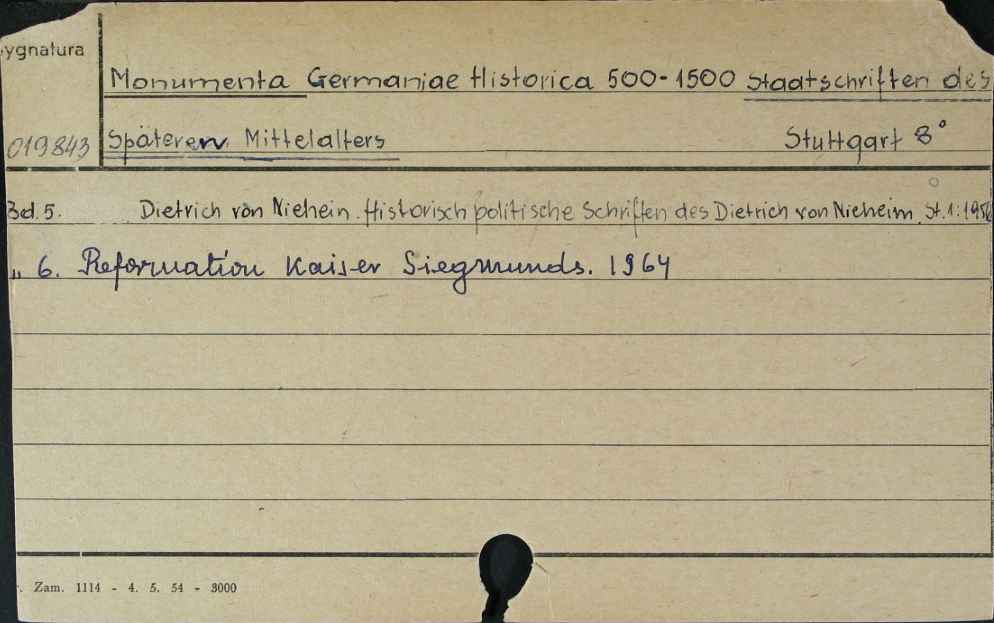 ygnatura
Monumenta Germaniae Historica 500-1500 Staatschriften des
019843 Späteren Mittelalters Stuttgart 8°
Bd. 5. Dietrich von Niehein. Historisch politische Schriften des Dietrich von Nieheim, St. 1: 195
„ 6. Reformation Kaiser Siegmunds. 1964
. Zam. 1114 - 4. 5. 54 - 3000